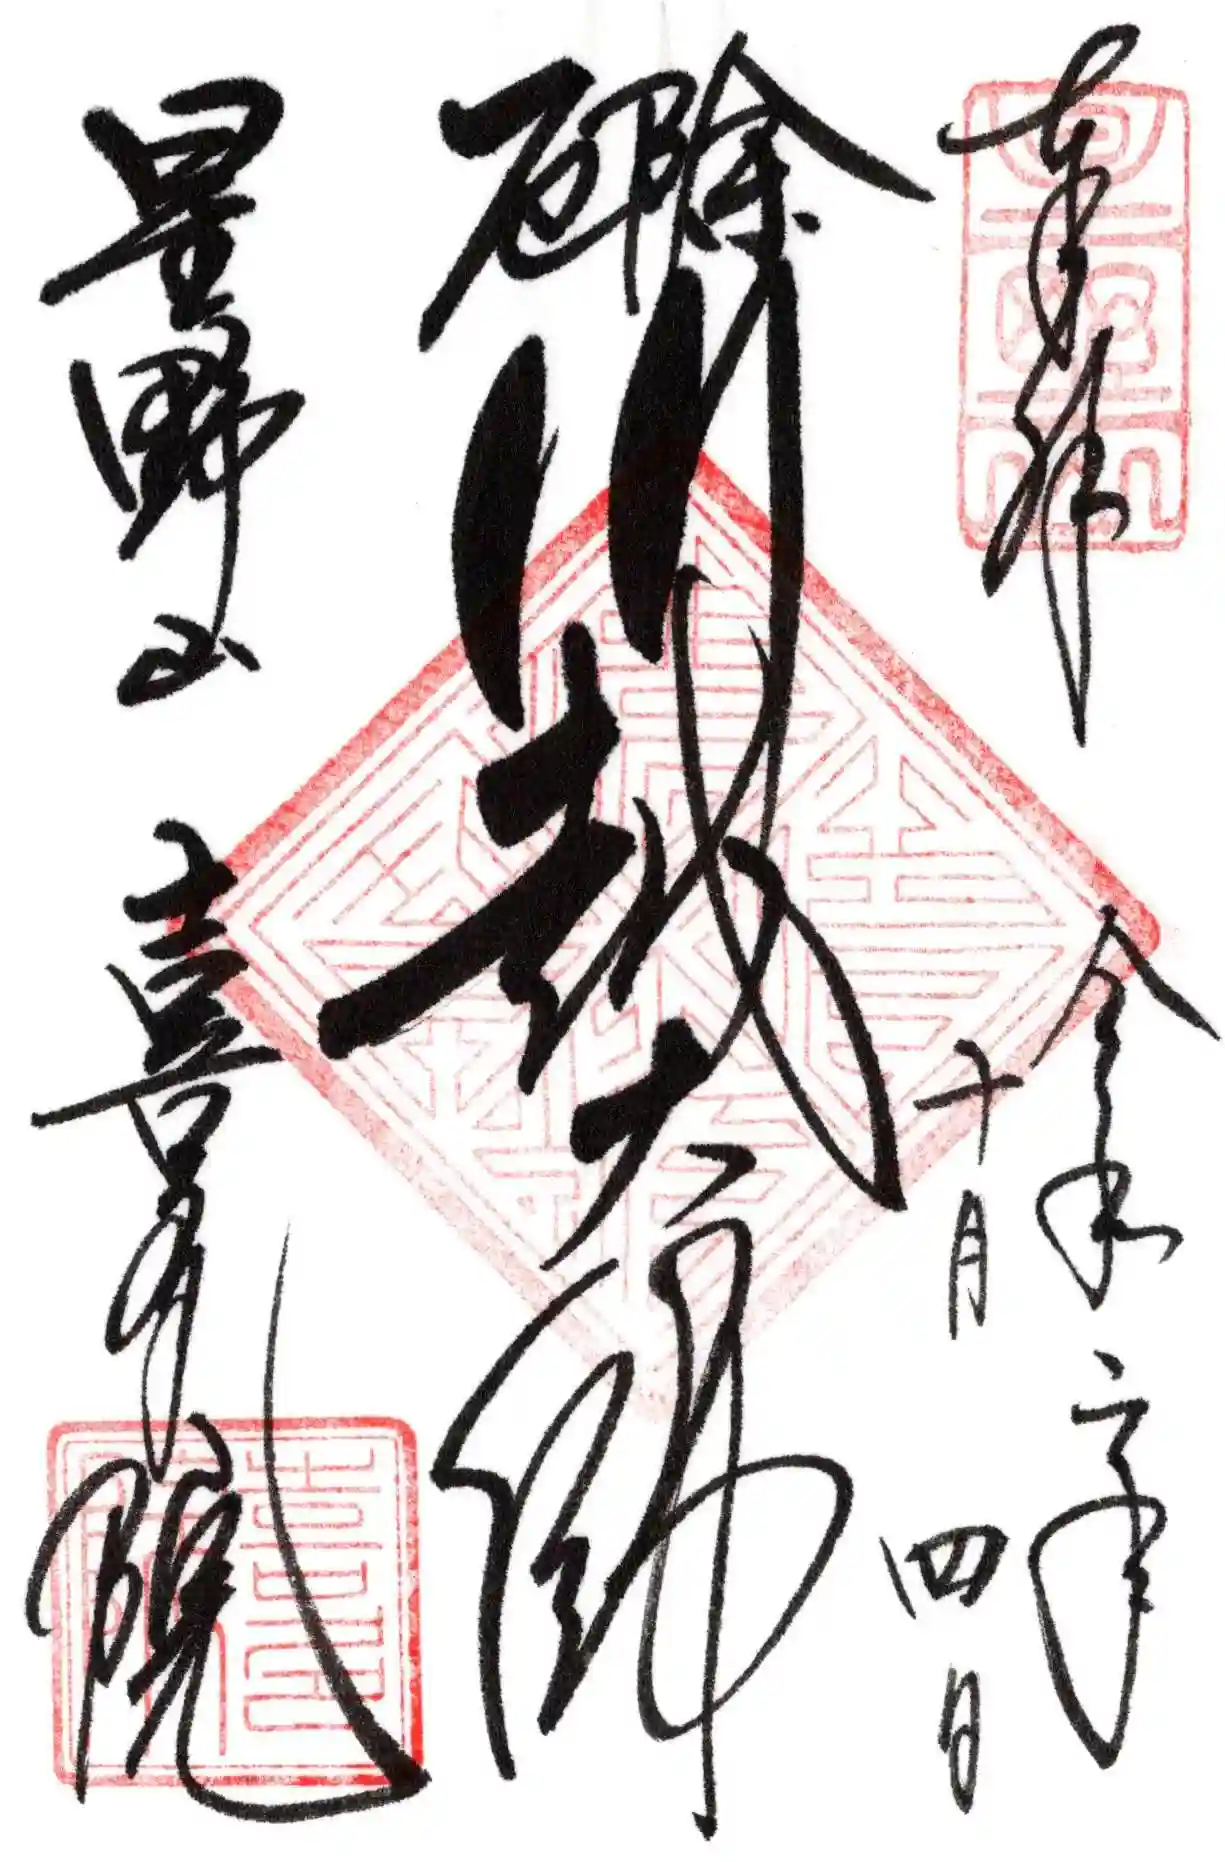 奉拝
令和二年
十月
四日
厄除
川越大師
星野山
喜多院